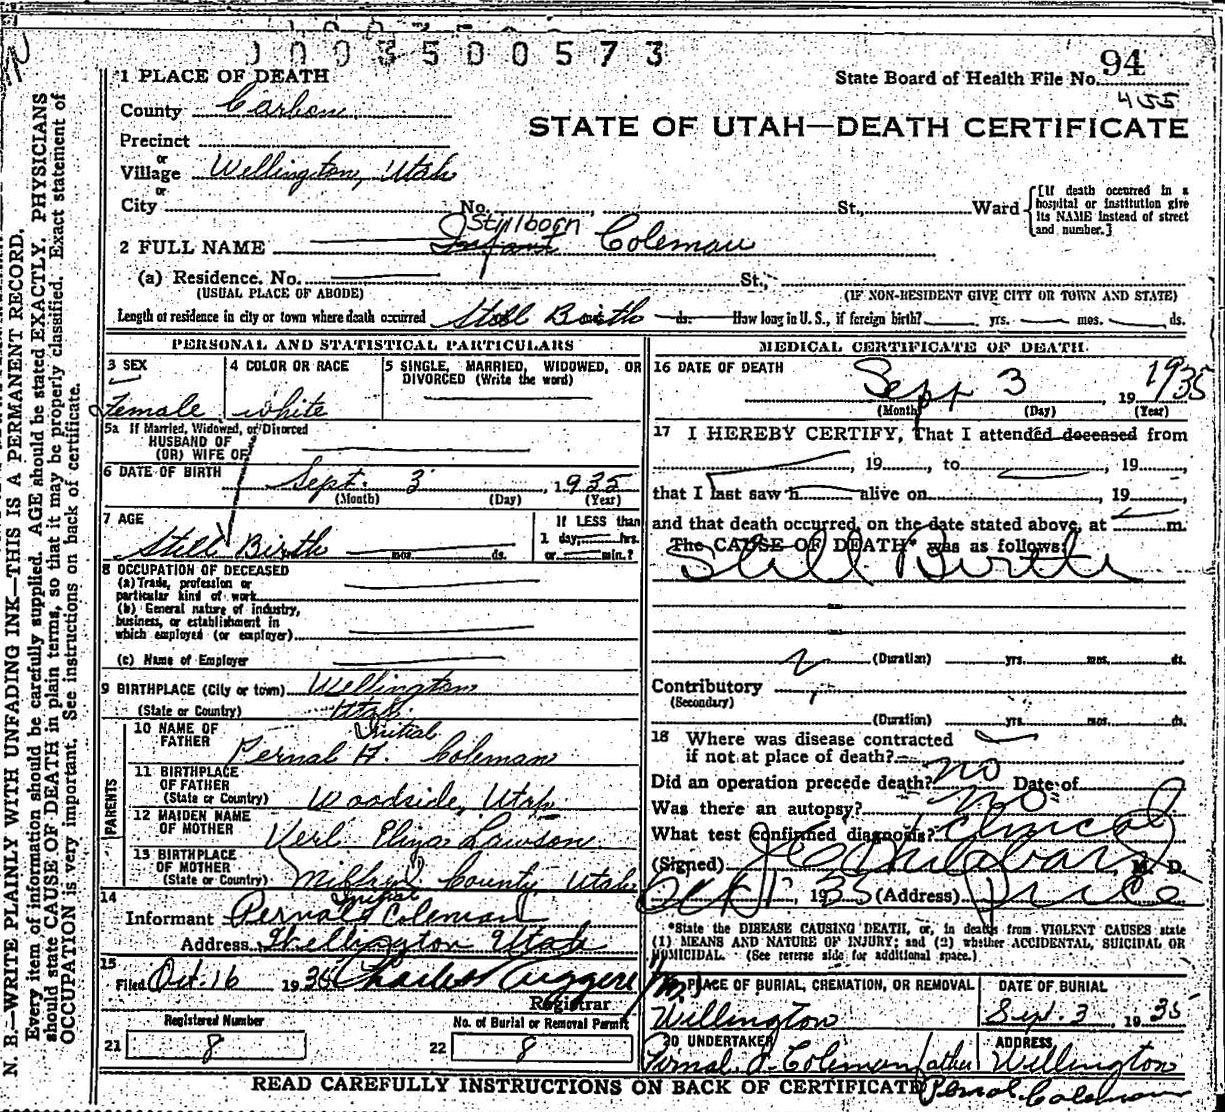 1 0 0 3 5 0 0 5 7 3
1 PLACE OF DEATH
State Board of Health File No. 94
455
County Carbon
STATE OF UTAH—DEATH CERTIFICATE
Precinct
or
Village Wellington, Utah
or
City No. St., Ward
[If death occurred in a hospital or institution give its NAME instead of street and number.]
Stillborn
2 FULL NAME Infant Coleman
(a) Residence. No. St.,
(USUAL PLACE OF ABODE) (IF NON-RESIDENT GIVE CITY OR TOWN AND STATE)
Length of residence in city or town where death occurred Still Birth ds. How long in U. S., if foreign birth? yrs. mos. ds.
PERSONAL AND STATISTICAL PARTICULARS
3 SEX 4 COLOR OR RACE 5 SINGLE, MARRIED, WIDOWED, OR DIVORCED (Write the word)
Female white
5a If Married, Widowed, or Divorced
HUSBAND OF
(OR) WIFE OF
6 DATE OF BIRTH Sept. 3, 1935
(Month) (Day) (Year)
7 AGE If LESS than
1 day, hrs.
Still Birth mos. ds. or min.?
8 OCCUPATION OF DECEASED
(a) Trade, profession or
particular kind of work
(b) General nature of industry,
business, or establishment in
which employed (or employer)
(c) Name of Employer
9 BIRTHPLACE (City or town) Wellington
(State or Country) Utah
PARENTS
10 NAME OF FATHER Initial
Pernal Coleman
11 BIRTHPLACE OF FATHER
(State or Country) Woodside, Utah
12 MAIDEN NAME OF MOTHER Verl Eliza Lawson
13 BIRTHPLACE OF MOTHER
(State or Country) County Utah
14 Initial
Informant Pernal Coleman
Address Wellington Utah
15
Filed Oct. 16 1935 Charles
Registrar
Registered Number No. of Burial or Removal Permit
21 8 22 8
MEDICAL CERTIFICATE OF DEATH
16 DATE OF DEATH
Sept 3, 19 1935
(Month) (Day) (Year)
17 I HEREBY CERTIFY, That I attended deceased from
, 19 , to , 19 ,
that I last saw h alive on , 19 ,
and that death occurred, on the date stated above, at m.
The CAUSE OF DEATH* was as follows:
Still Birth
(Duration) yrs. mos. ds.
Contributory
(Secondary)
(Duration) yrs. mos. ds.
18 Where was disease contracted
if not at place of death?
Did an operation precede death? no Date of
Was there an autopsy? no
What test confirmed diagnosis? Clinical
(Signed) M. D.
Oct 1, 1935 (Address) Price
*State the DISEASE CAUSING DEATH, or, in deaths from VIOLENT CAUSES state
(1) MEANS AND NATURE OF INJURY; and (2) whether ACCIDENTAL, SUICIDAL OR
HOMICIDAL. (See reverse side for additional space.)
PLACE OF BURIAL, CREMATION, OR REMOVAL DATE OF BURIAL
Wellington Sept. 3, 1935
20 UNDERTAKER ADDRESS
Pernal Coleman father Wellington
READ CAREFULLY INSTRUCTIONS ON BACK OF CERTIFICATE
Pernal Coleman
N. B.—WRITE PLAINLY WITH UNFADING INK—THIS IS A PERMANENT RECORD.
Every item of information should be carefully supplied. AGE should be stated EXACTLY. PHYSICIANS
should state CAUSE OF DEATH in plain terms, so that it may be properly classified. Exact statement of
OCCUPATION is very important. See instructions on back of certificate.